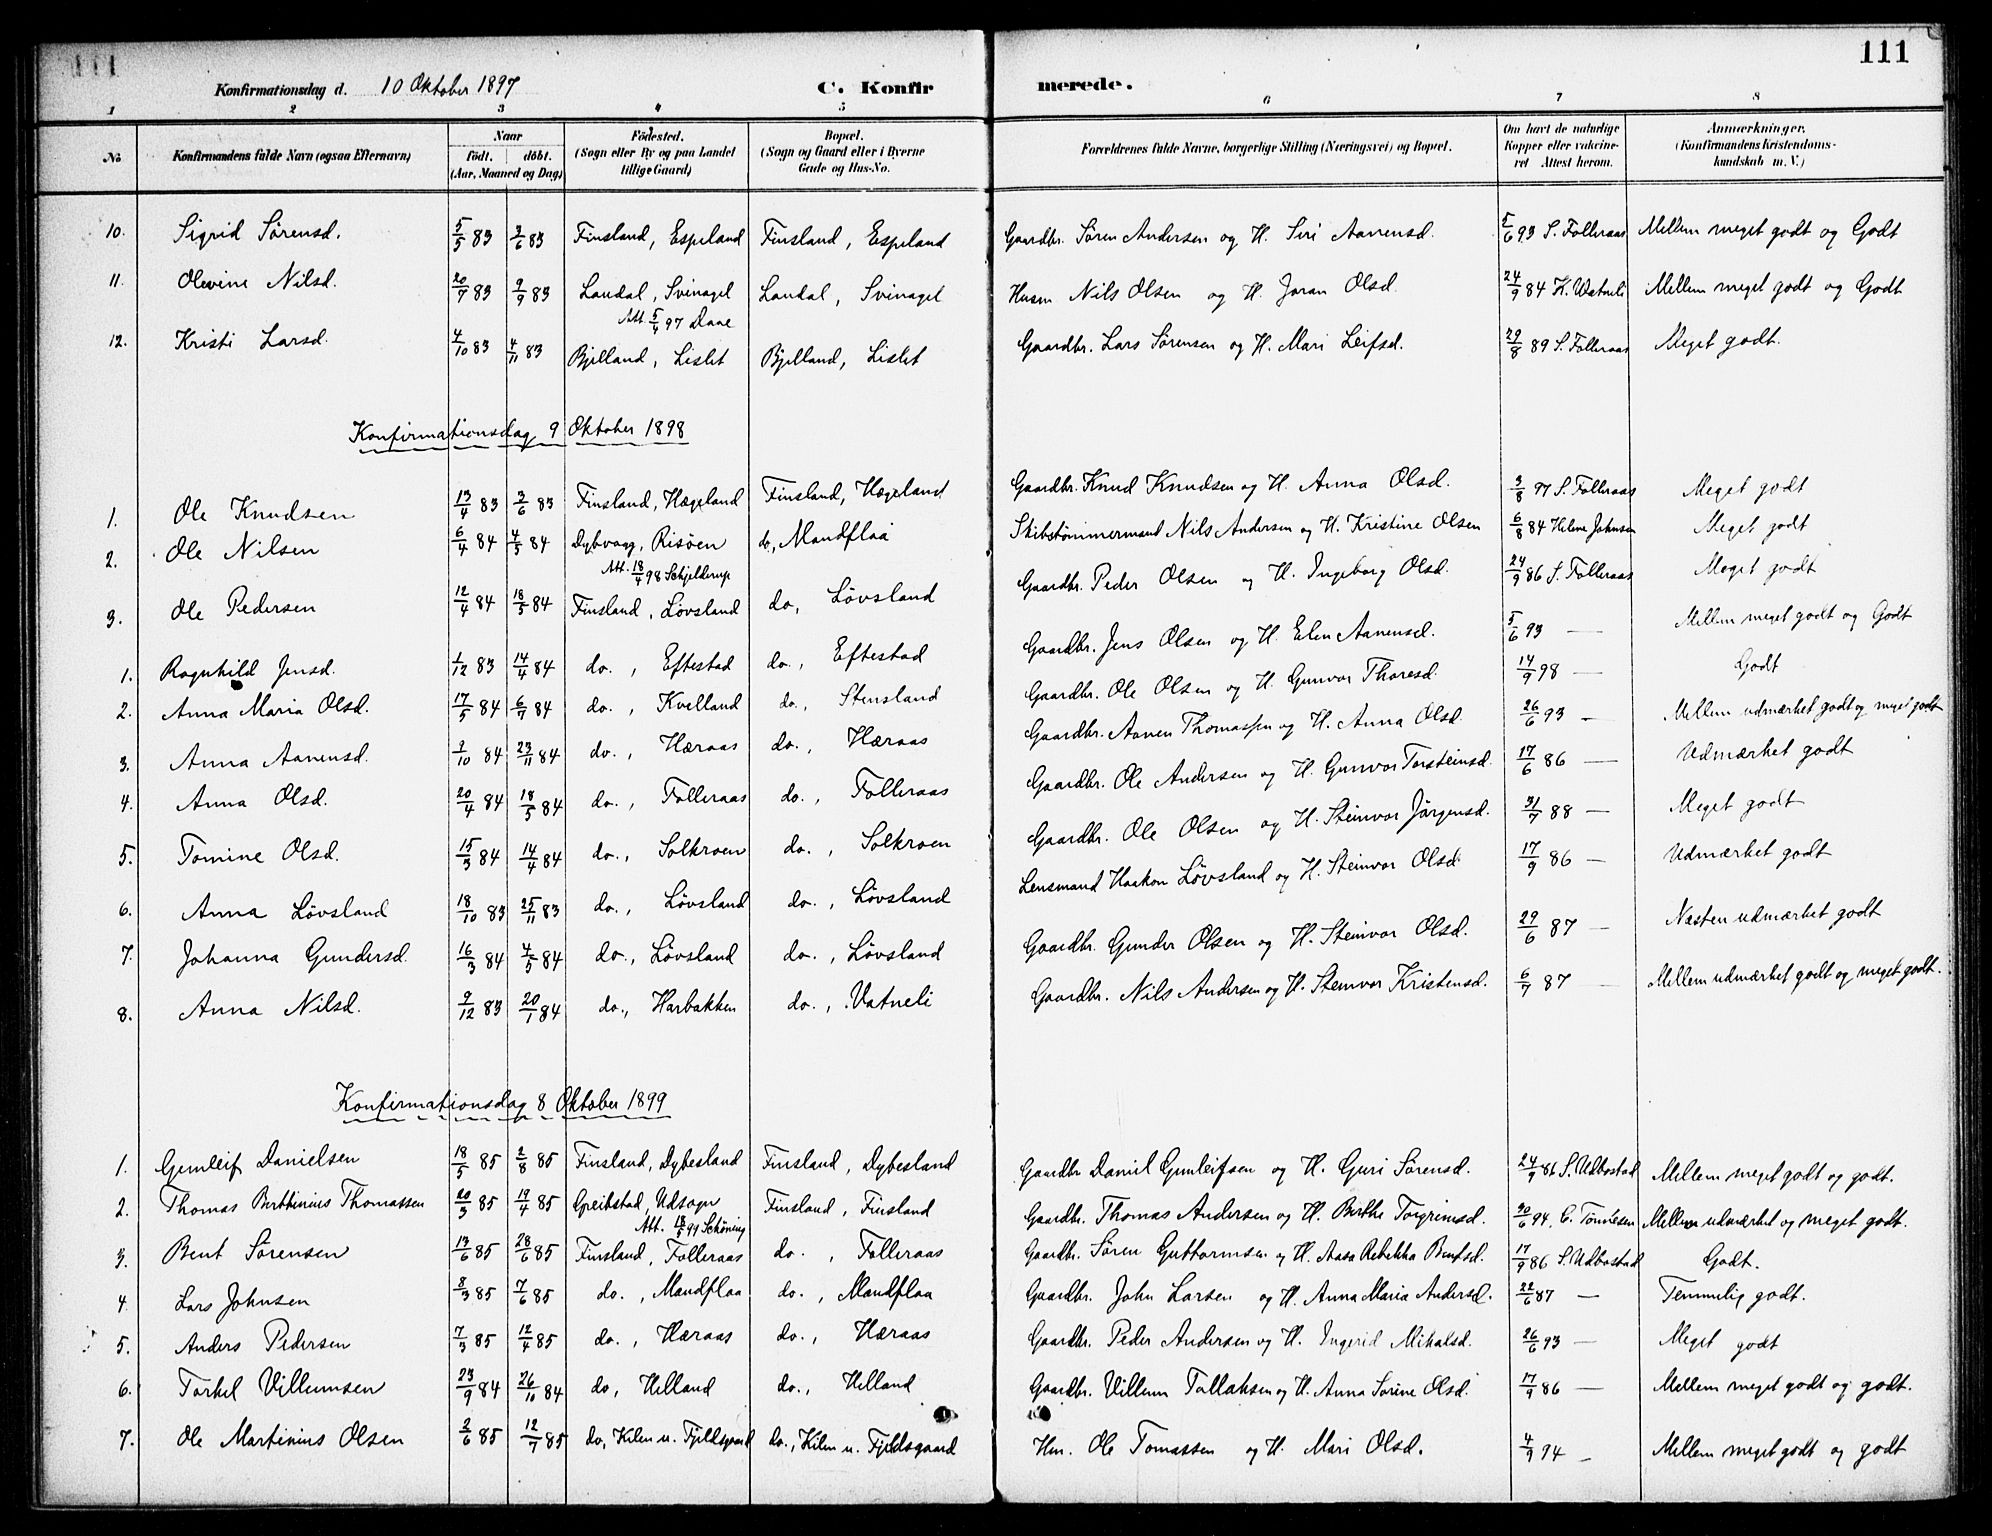 111
Konfirmationsdag d. 10 Oktober 1897 C. Konfir merede.
1 2 3 4 5 6 7 8
No Konfirmandens fulde Navn (ogsaa Efternavn) Naar født. døbt. (Aar, Maaned og Dag) Fødested. (Sogn eller By og paa Landet tillige Gaard) Bopæl. (Sogn og Gaard eller i Byerne Gade og Hus-No. Forældrenes fulde Navne, borgerlige Stilling (Næringsvei) og Bopæl. Om havt de naturlige Kopper eller vakcineret Attest herom. Anmærkninger. (Konfirmandens Kristendomskundskab m. V.)
10. Sigrid Sørensd. 5/5 83 3/6 83 Finsland, Espeland Finsland, Espeland Gaardbr. Søren Andersen og H. Siri Aanensd. 5/6 93 S. Folleraas Mellem meget godt og Godt
11. Olevine Nilsd. 20/7 83 9/9 83 Laudal, Svinaget Laudal, Svinaget Husm Nils Olsen og H. Joran Olsd 24/9 84 K. Watneli Mellem meget godt og Godt
Att. 5/4 97 Daae
12. Kristi Larsd. 4/10 83 4/11 83 Bjelland, Lislet Bjelland, Lislet Gaardbr. Lars Sørensen og H. Mari Leifsd. 29/8 89 S. Folleraas Meget godt.
Konfirmationsdag 9 Oktober 1898
1. Ole Knudsen 13/4 83 3/6 83 Finsland, Hægeland Finsland, Hægeland Gaardbr. Knud Knudsen og H. Anna Olsd. 3/8 97 S. Folleraas Meget godt
2. Ole Nilsen 6/4 84 4/5 84 Dybvaag, Risøen do, Mandflaa Skibstømmermand Nils Andersen og H. Kristine Olsen 6/8 84 Helene Johnsen Meget godt
Att. 18/4 98 Schjelderup
3. Ole Pedersen 12/4 84 18/5 84 Finsland, Løvsland do, Løvsland Gaardbr. Peder Olsen og H. Ingeborg Olsd. 24/9 86 S. Folleraas Meget godt
1. Ragnhild Jensd. 1/12 83 14/4 84 do., Eftestad do., Eftestad Gaardbr. Jens Olsen og H. Elen Aanensd. 5/6 93 — Mellem meget godt og Godt
2. Anna Maria Olsd. 17/5 84 6/7 84 do., Kvelland do., Stensland Gaardbr. Ole Olsen og H. Gunvor Tharesd. 14/9 98 — Godt
3. Anna Aanensd. 9/10 84 23/11 84 do., Hæraas do., Hæraas Gaardbr. Aanen Thomassen og H. Anna Olsd. 26/6 93 — Mellem udmærket godt og meget godt
4. Anna Olsd. 20/4 84 18/5 84 do., Folleraas do., Folleraas Gaardbr. Ole Andersen og H. Gunvor Torsteinsd. 17/6 86 — Udmærket godt
5. Tomine Olsd. 15/3 84 14/4 84 do., Solkroen do., Solkroen Gaardbr. Ole Olsen og H. Steinvor Jørgensd. 31/7 88 — Meget godt
6. Anna Løvsland 18/10 83 25/11 83 do., Løvsland do., Løvsland Lensmand Haakon Løvsland og H. Steinvor Olsd. 17/9 86 — Udmærket godt
7. Johanna Gundersd. 16/3 84 4/5 84 do., Løvsland do., Løvsland Gaardbr. Gunder Olsen og H. Steinvor Olsd. 29/6 87 — Næsten udmærket godt
8. Anna Nilsd. 9/12 83 20/1 84 do., Harbakken do., Vatneli Gaardbr. Nils Andersen og H. Steinvor Kristensd. 6/7 87 — Mellem udmærket godt og meget godt.
Konfirmationsdag 8 Oktober 1899
1. Gunleif Danielsen 18/5 85 2/8 85 Finsland, Dybesland Finsland, Dybesland Gaardbr Daniel Gunleifsen og H. Guri Sørensd. 24/9 86 S. Udbostad Mellem meget godt og godt.
2. Thomas Berthinius Thomassen 20/3 85 19/4 85 Greibstad, Udsogn Finsland, Finsland Gaardbr. Thomas Andersen og H. Berthe Torgrimsd. 30/6 94, C. Tønnesen Mellem udmærket og meget godt.
Att. 18/5 99 Schøning
3. Bent Sørensen 13/6 85 28/6 85 Finsland, Folleraas do., Folleraas Gaardbr. Søren Guttormsen og H. Aasa Rebekka Bentsd. 17/9 86 S. Udbostad Godt.
4. Lars Johnsen 8/3 85 7/6 85 do., Mandflaa do., Mandflaa Gaardbr. John Larsen og H. Anna Maria Andersd. 22/6 87 — Temmelig godt.
5. Anders Pedersen 7/3 85 12/4 85 do., Hæraas do., Hæraas Gaardbr. Peder Andersen og H. Ingerid Mikalsd. 26/6 93 — Meget godt
6. Torkel Villumsen 23/9 84 26/10 84 do, Helland do., Helland Gaardbr. Villum Tallaksen og H. Anna Sørine Olsd. 17/9 86 — Mellem meget godt og godt.
7. Ole Martinius Olsen 2/6 85 12/7 85 do, Kilen u. Fjeldsgaard do., Kilen u. Fjeldsgaard Hm. Ole Tomassen og H. Mari Olsd. 4/9 94 — Mellem meget godt og godt